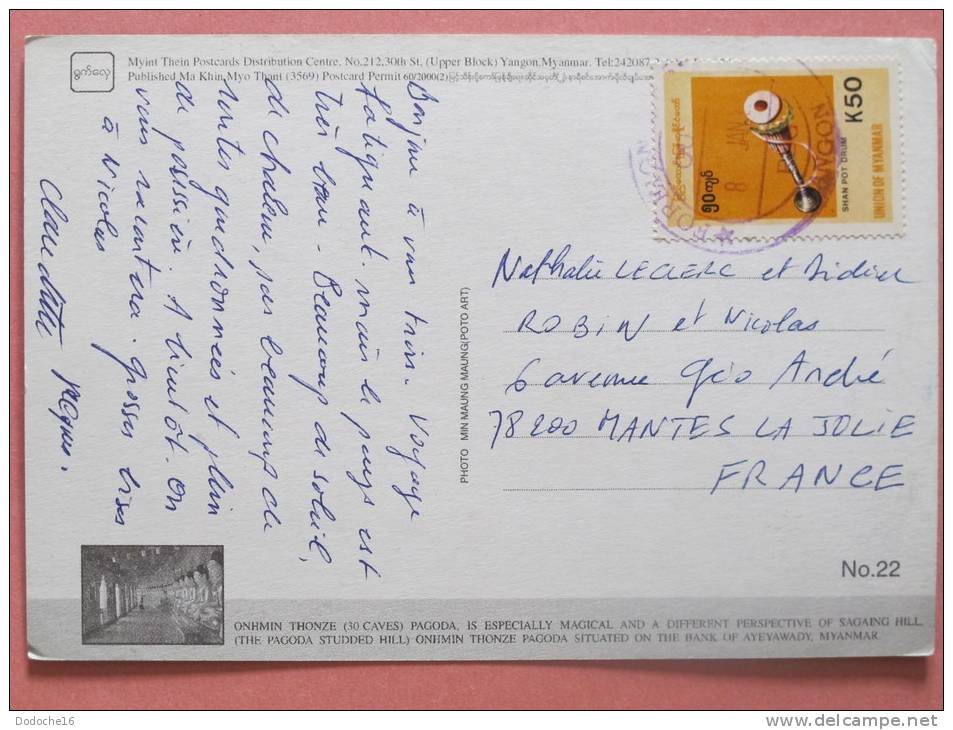 ရွက်လှေ
Myint Thein Postcards Distribution Centre, No.212,30th St, (Upper Block) Yangon,Myanmar. Tel:242087,
Published Ma Khin Myo Thant (3569) Postcard Permit 60/2000(2)
Bonjour à vous trois. Voyage
fatiguant mais le pays est
très beau. Beaucoup de soleil,
de chaleur, pas beaucoup de
routes goudronnées et plein
de poussière. A bientôt. On
vous racontera. Grosses bises
à Nicolas
Claudette
၅၀ကျပ်
SHAN POT DRUM
K50
UNION OF MYANMAR
8 JAN
YANGON
PHOTO MIN MAUNG MAUNG(POTO ART)
Nathalie LECLERC et Didier
ROBIN et Nicolas
6 avenue Géo André
78200 MANTES LA JOLIE
FRANCE
No.22
ONHMIN THONZE (30 CAVES) PAGODA, IS ESPECIALLY MAGICAL AND A DIFFERENT PERSPECTIVE OF SAGAING HILL.
(THE PAGODA STUDDED HILL) ONHMIN THONZE PAGODA SITUATED ON THE BANK OF AYEYAWADY, MYANMAR.
Dodoche16
delcampe.net